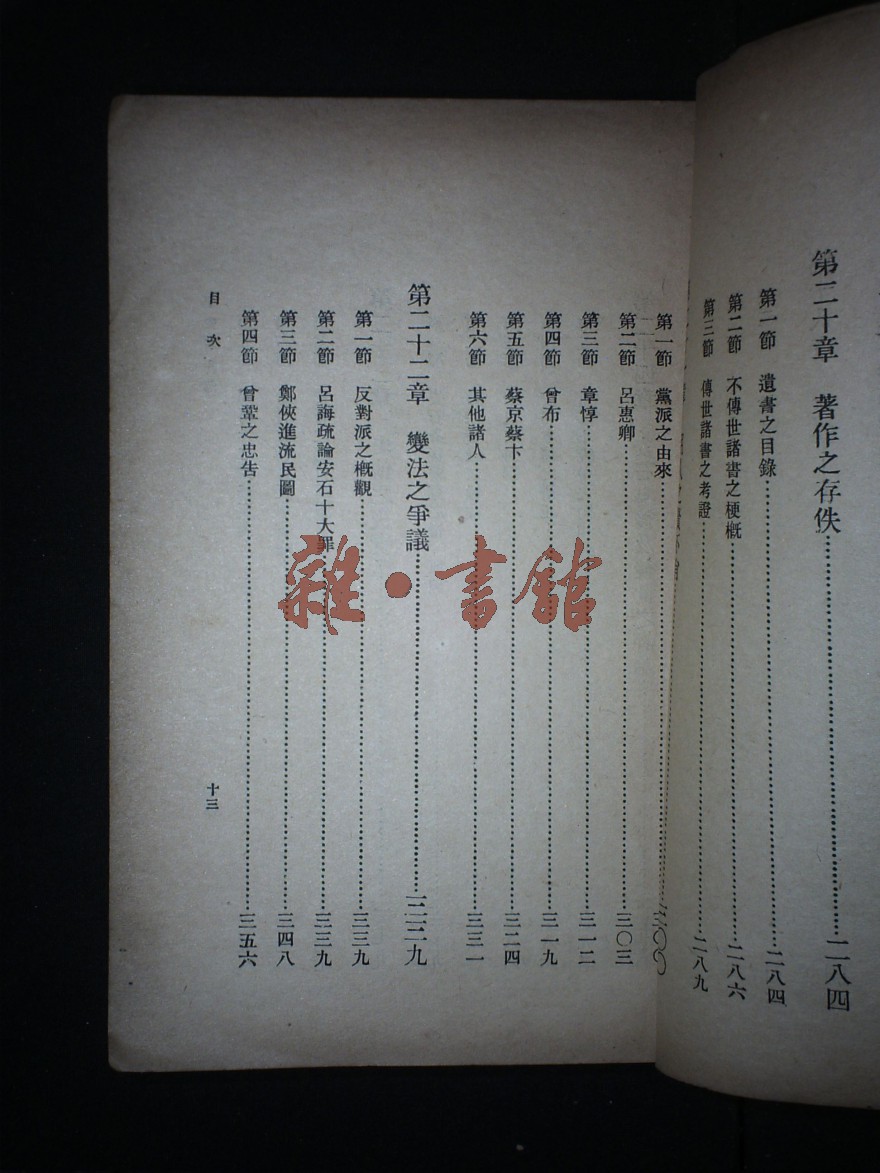 第二十章　著作之存佚……二八四
第一節　遺書之目錄……二八四
第二節　不傳世諸書之梗概……二八六
第三節　傳世諸書之考證……二八九
第一節　黨派之由來……三〇〇
第二節　呂惠卿……三〇三
第三節　章惇……三一二
第四節　曾布……三一九
第五節　蔡京蔡卞……三二四
第六節　其他諸人……三三一
第二十二章　變法之爭議……三三九
第一節　反對派之概觀……三三九
第二節　呂誨疏論安石十大罪……三三九
第三節　鄭俠進流民圖……三四八
第四節　曾鞏之忠告……三五六
目次
十三
雜·書館